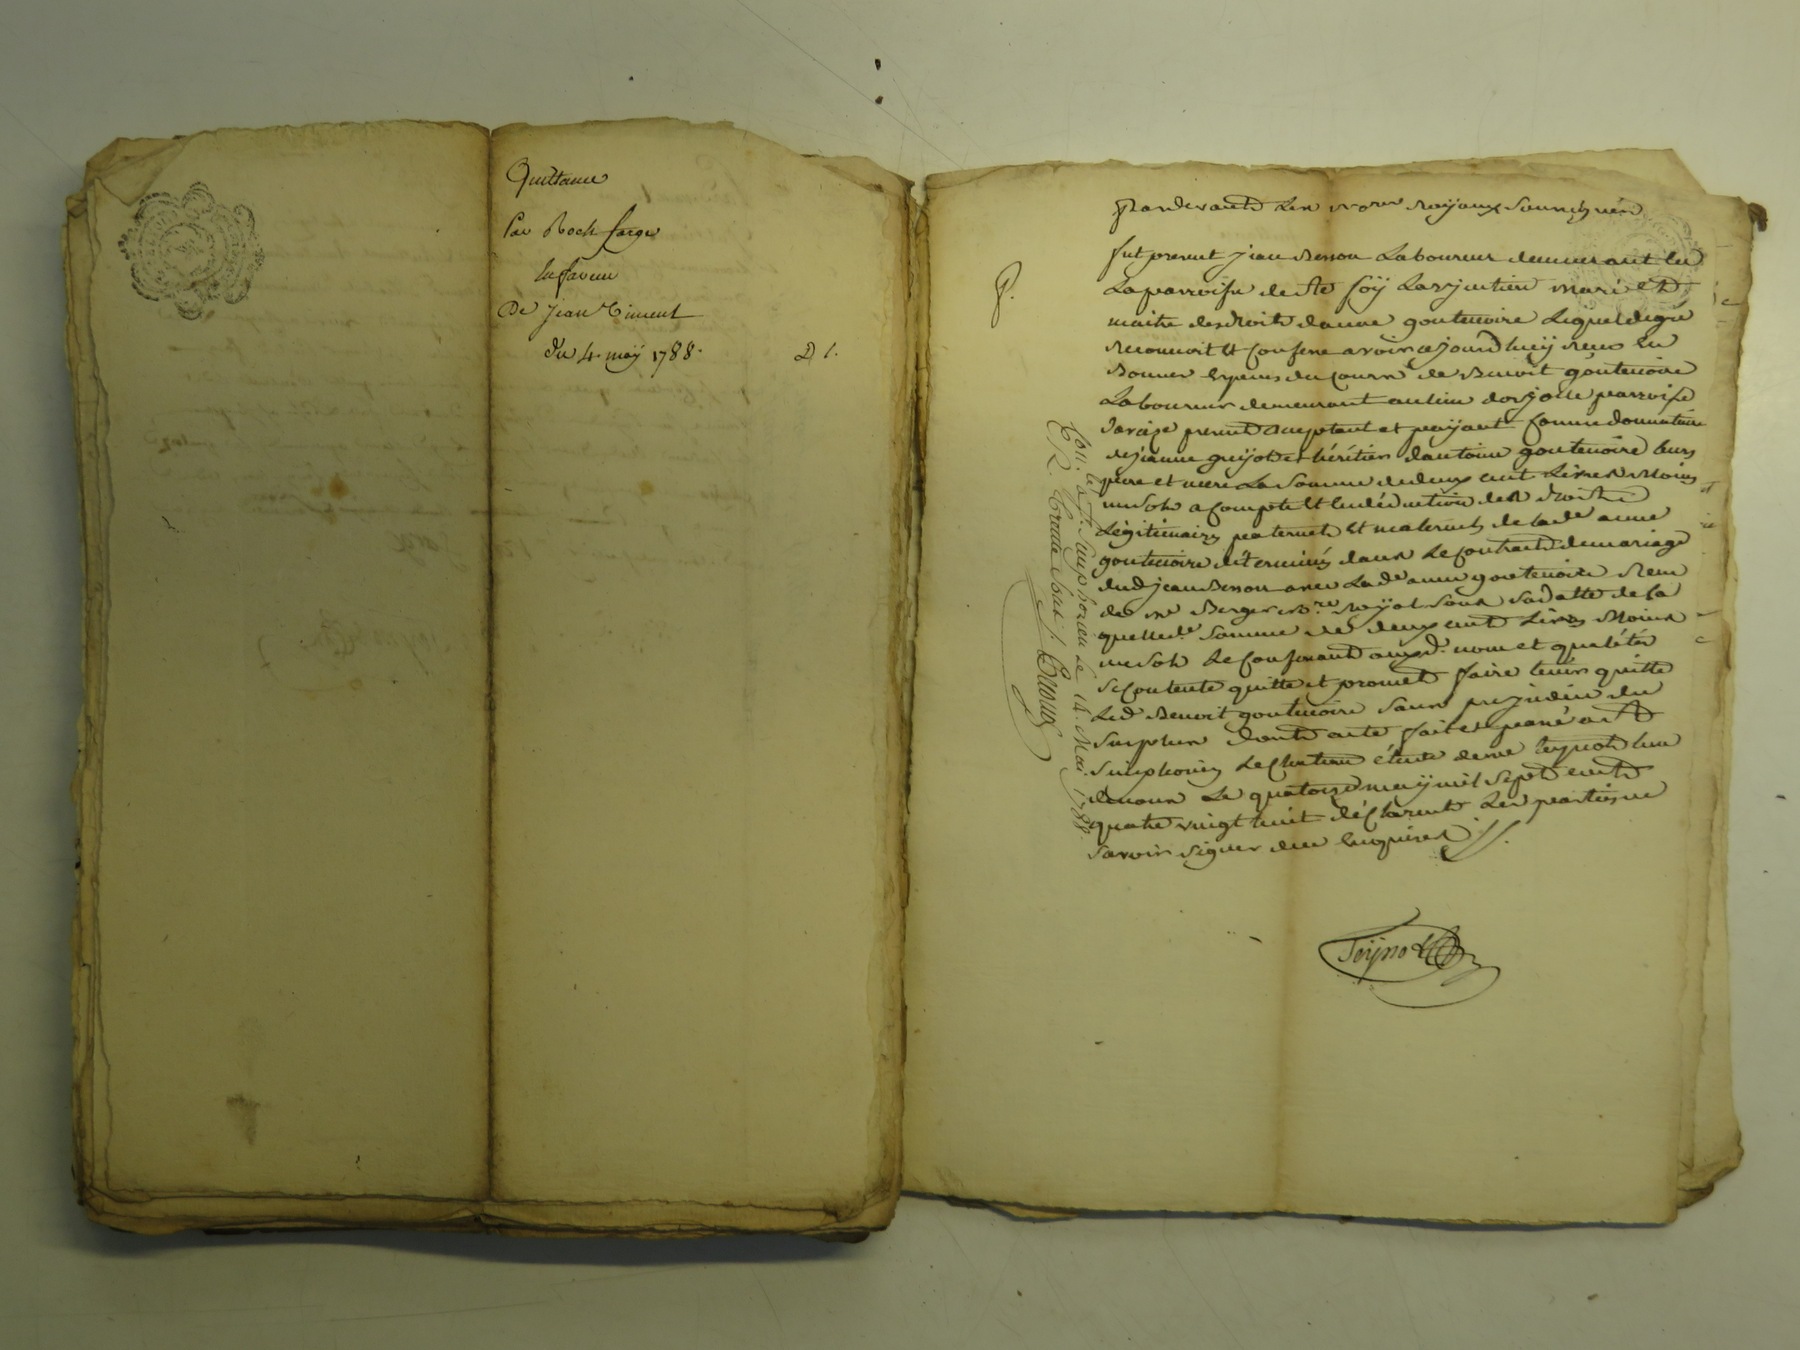 Quittance
Par Roch farge
En faveur
De Jean Ciment
du 4. may 1788.
D 1.
Pardevant Les no.res Royaux soussignés
fut present jean Besson Laboureur demeurant En
La parroisse de Ste foÿ Largentiere mari et
maitre des droits d'anne goutenoire Lequel de gré
reconnoit et confesse avoir ce jourd'huÿ reçu En
Bonnes Especes du Cours de Benoit goutenoire
Laboureur demeurant au lieu parroisse
present acceptant et payant comme donnataire
de jeanne guyot et héritier d'antoine goutenoire leurs
pere et mere La somme de deux cent Livres Moins
un sols a compte et En déduction des droits
Légitimaires paternels et maternels de lad.e anne
goutenoire déterminés dans Le contract de mariage
dud jean Besson avec Lad.e anne goutenoire Reçu
de me Berger no.re Royal sous sa datte de la
quelle d.e somme de deux cent Livres Moins
un sols Le confessant auxd. nom et qualités
se contente quitte et promet faire tenir quitte
Led Benoit goutenoire sans prejudice du
surplus dont acte fait et passé a St
simphorien Le Chateau étude de me teynot l'un
de nous Le quatorze may mil sept cent
quatre vingt huit déclarent Les parties ne
savoir signer de ce Enquises //.
Teynot
Con. le a St. Simphorien Le 14. Mai 1788.
R. Trente sous /.